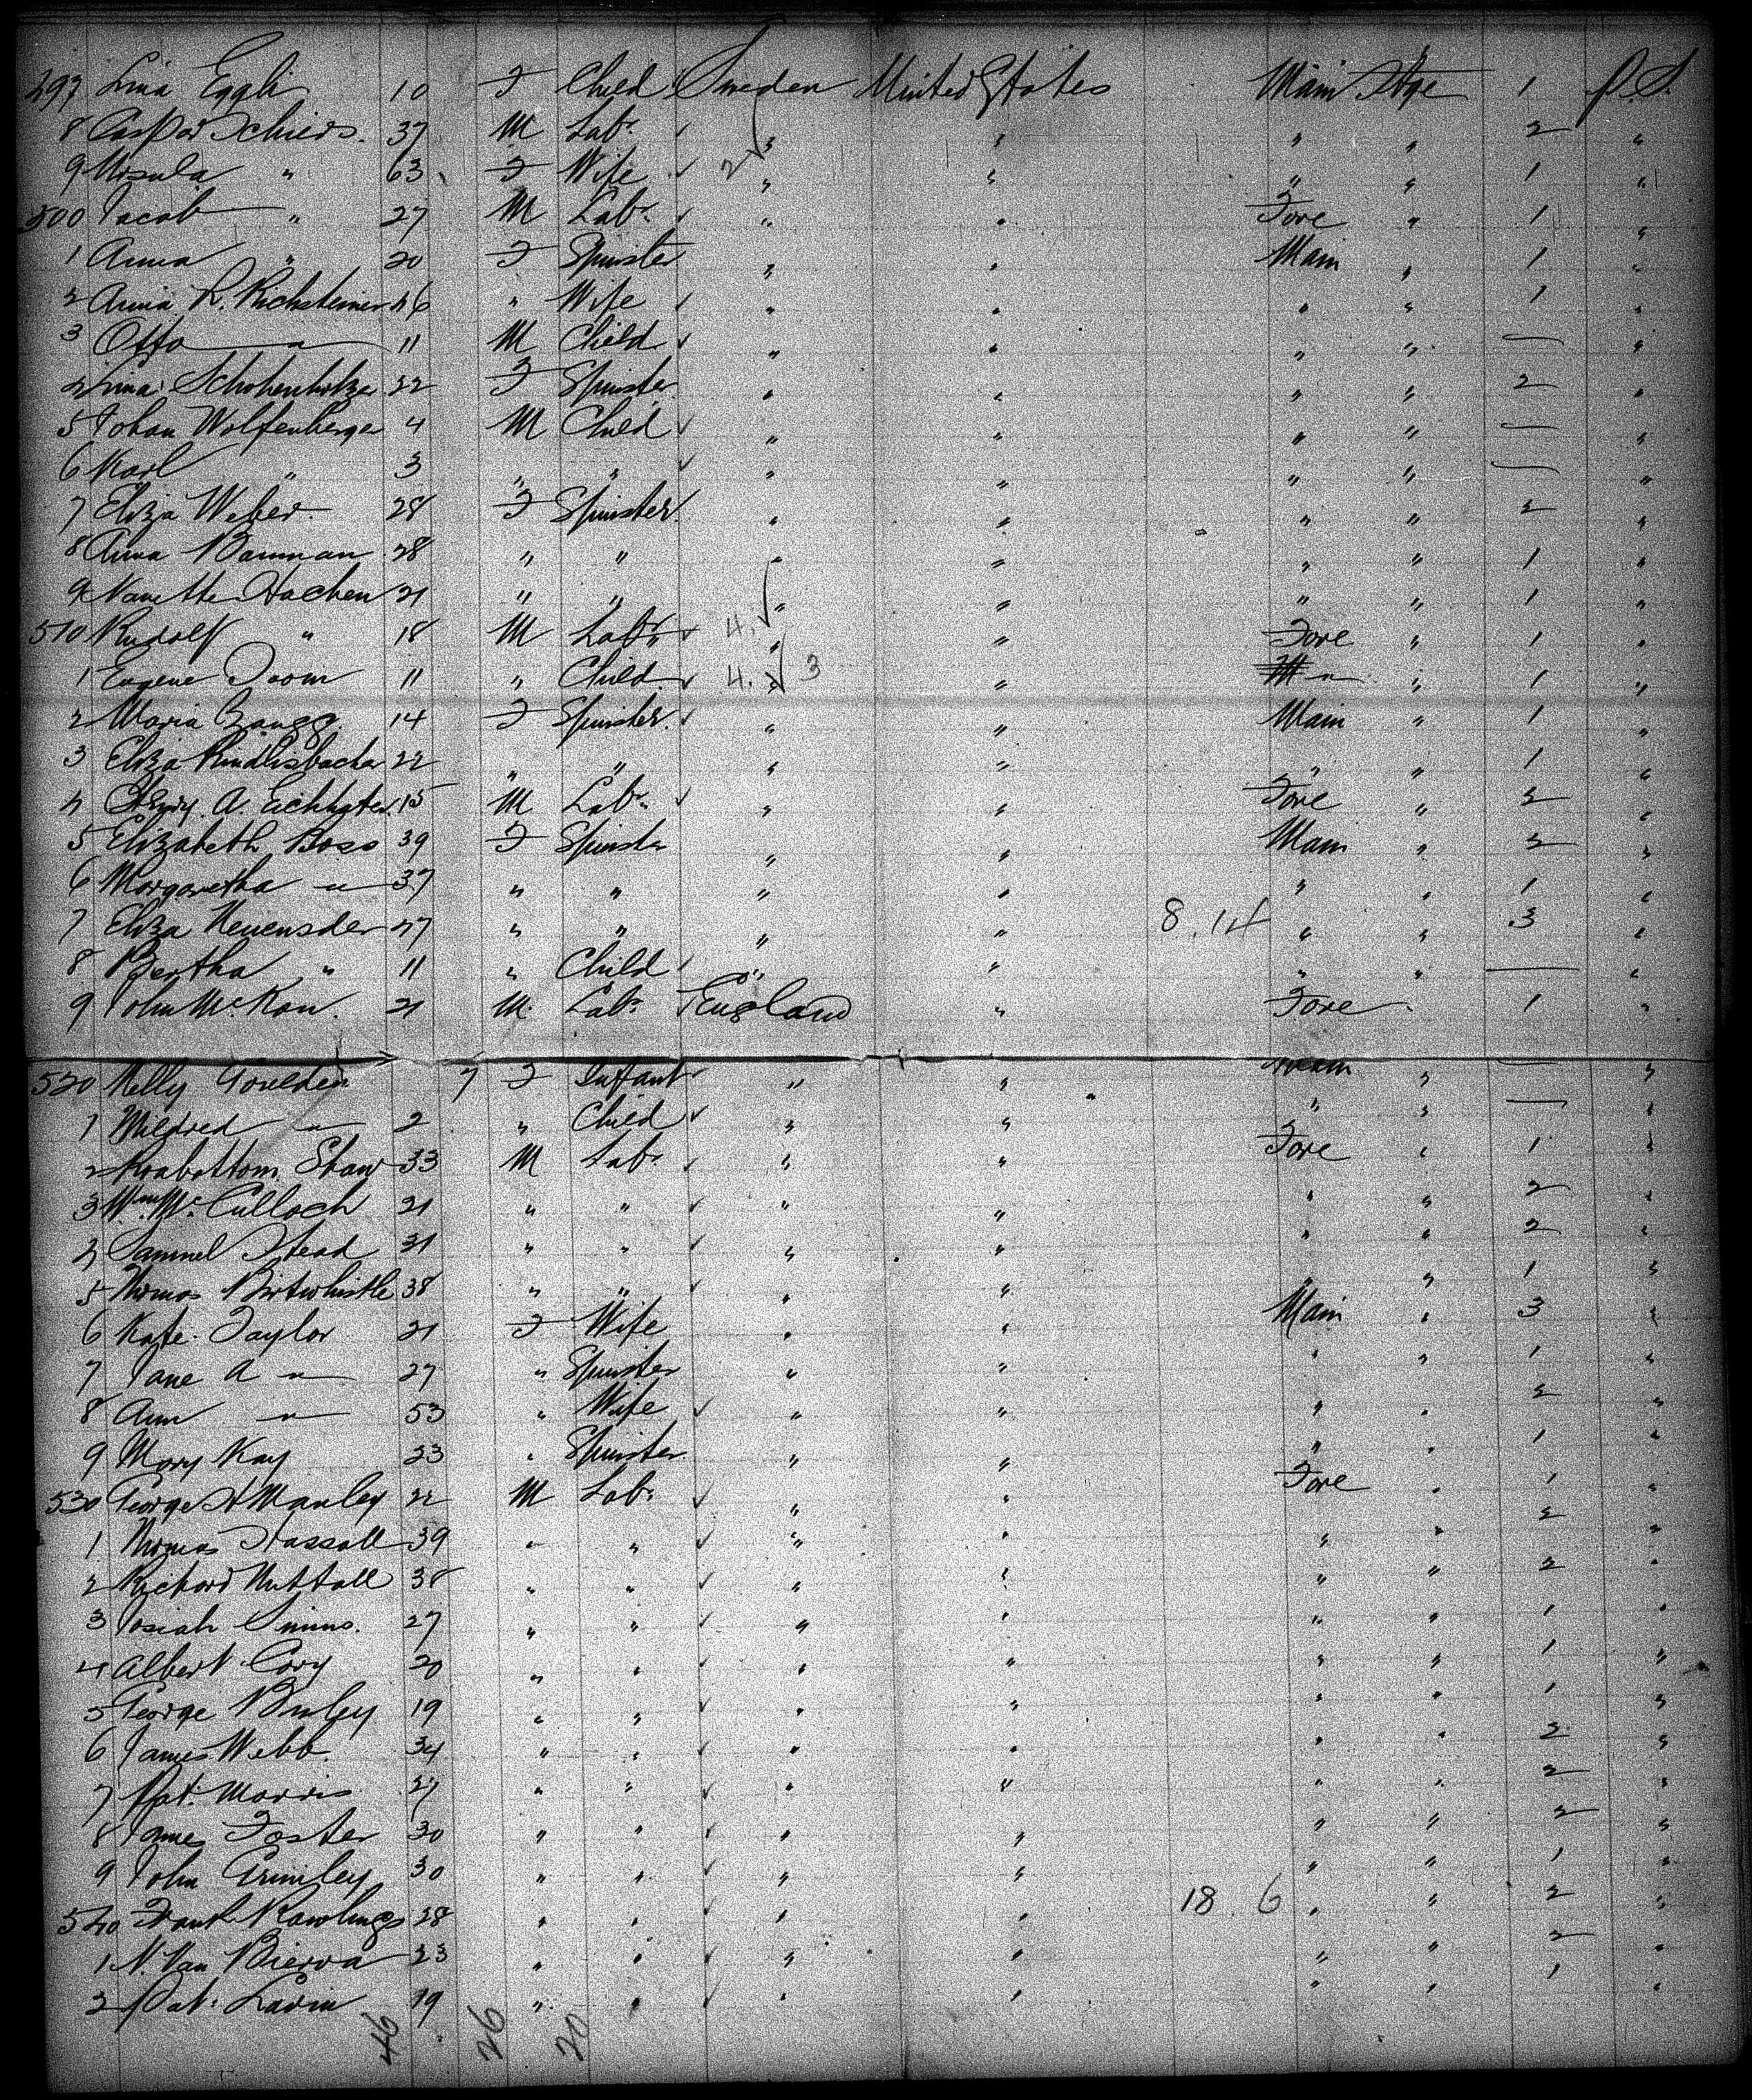 497 Lina Eggli 10 F Child Sweden United States Main Stge 1 P.S.
8 Caspar Schiers. 37 M Labr " " " " 2 "
9 Ursula " 63 F Wife 2 " " " " 1 "
500 Jacob " 27 M Labr " " Fore " 1 "
1 Anna " 20 F Spinster " " Main " 1 "
2 Anna R. 46 " Wife " " " " 1 "
3 Otto " 11 M Child " " " " — "
4 Lina 22 F Spinster " " " " 2 "
5 Johan Wolfenberger 4 M Child " " " " — "
6 Karl " 3 " " " " " " — "
7 Eliza Weber 28 F Spinster " " " " 2 "
8 Anna Bauman 28 " " " " " " 1 "
9 Nanette Hachen 21 " " " " " " 1 "
510 Rudolf " 18 M Labr 4. " " Fore " 1 "
1 Eugene 11 " Child 4. " 3 " " " 1 "
2 Maria Zaugg 14 F Spinster " " Main " 1 "
3 Eliza Rindlisbacher 22 " " " " " " 1 "
4 A. 15 M Labr " " Fore " 2 "
5 Elizabeth Boss 39 F Spinster " " Main " 2 "
6 Margaretha " 37 " " " " " " 1 "
7 Eliza 47 " " " " 8.14 " " 3 "
8 Bertha " 11 " Child " " " " — "
9 John 21 M. Labr England " Fore " 1 "
520 Nelly Goulden 7 F Infant " " Main " — "
1 Mildred " 2 " Child " " " " — "
2 Shaw 33 M Labr " " Fore " 1 "
3 Wm. McCulloch 21 " " " " " " 2 "
4 Samuel Stead 31 " " " " " " 2 "
5 Thomas Birtwhistle 38 " " " " " " 1 "
6 Kate Taylor 21 F Wife " " Main " 3 "
7 Jane A " 27 " Spinster " " " " 1 "
8 Ann " 53 " Wife " " " " 2 "
9 Mary Kay 23 " Spinster " " " " 1 "
530 George H Manley 22 M Labr " " Fore " 1 "
1 Thomas Hassall 39 " " " " " " 2 "
2 Richard Nuttall 38 " " " " " " 2 "
3 Josiah Simms. 27 " " " " " " 1 "
4 Albert Cory 20 " " " " " " 1 "
5 George 19 " " " " " " 1 "
6 James Webb 34 " " " " " " 2 "
7 Pat. Morris 27 " " " " " " 2 "
8 James Foster 30 " " " " " " 2 "
9 John Grimley 30 " " " " " " 1 "
540 Frank Rawlings 28 " " " " 18.6 " " 2 "
1 N. Van 23 " " " " " " 2 "
2 Pat. Lavin 19 " " " " " " 1 "
46 26 20